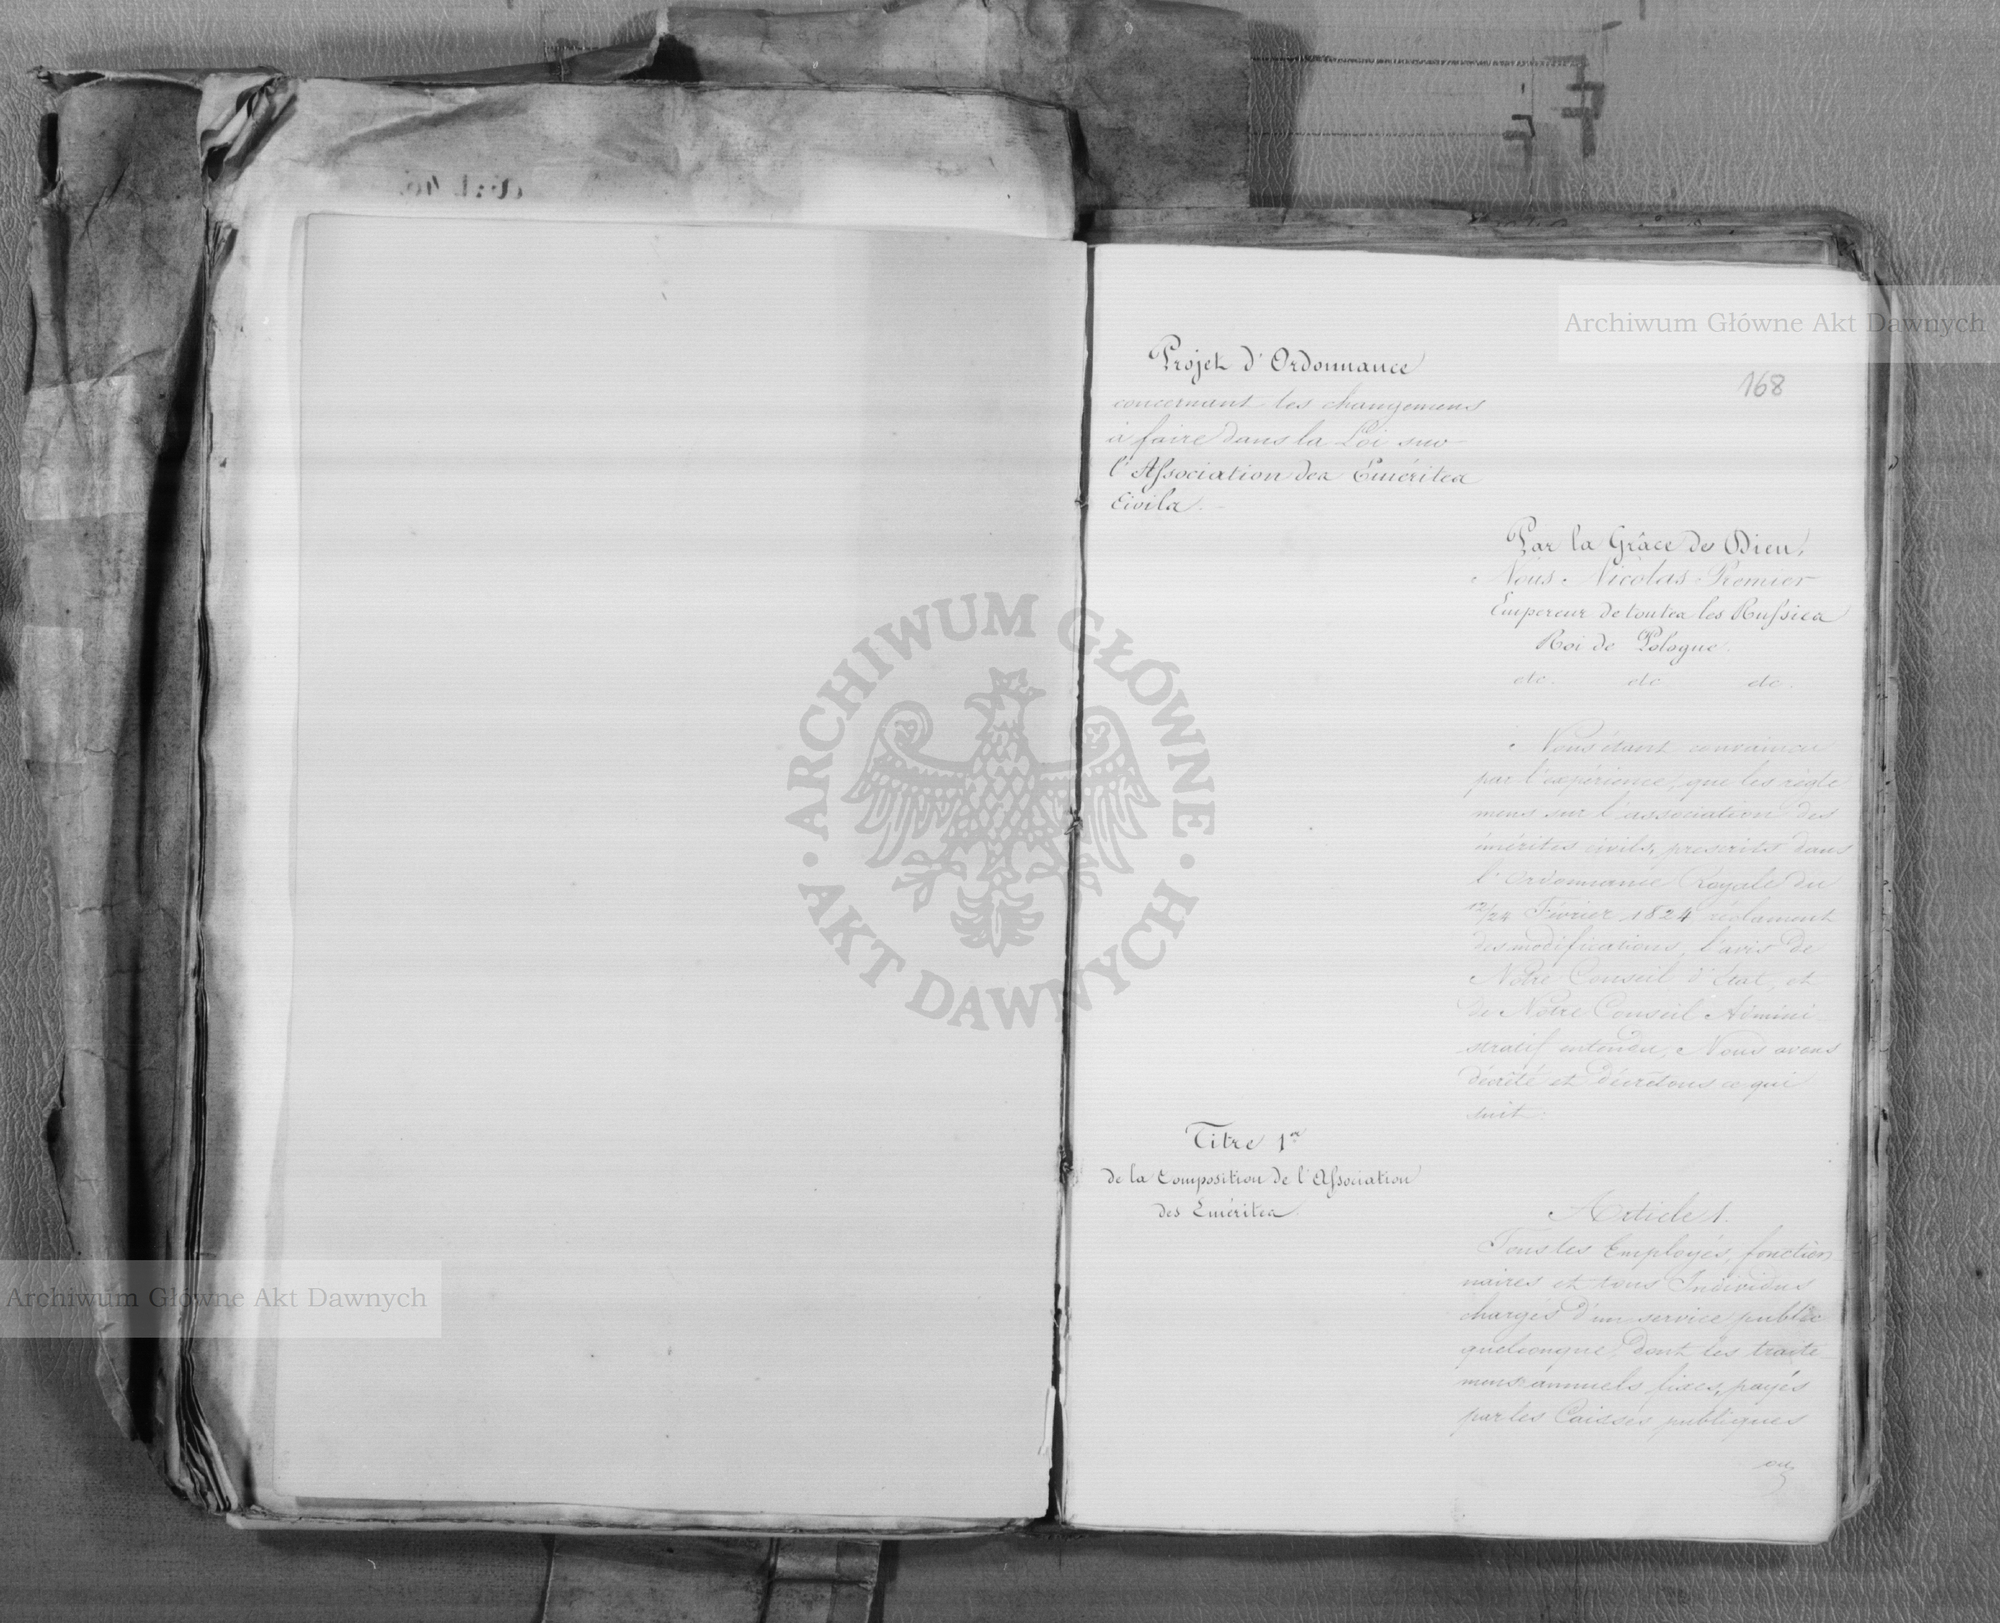 Archiwum Główne Akt Dawnych
168
Projet d'Ordonnance
concernant les changemens
à faire dans la Loi sur
l'Association des Émérites
Civils.
Par la Grâce de Dieu,
Nous Nicolas Premier
Empereur de toutes les Russies
Roi de Pologne.
etc. etc. etc.
Nous étant convaincu
par l'expérience, que les règle
mens sur l'association des
émérites civils, prescrits dans
l'Ordonnance Royale du
12/24 Février 1824 réclament
des modifications, l'avis de
Notre Conseil d'État, et
de Notre Conseil Admini
stratif entendu, Nous avons
décrété et décrétons ce qui
suit:
Titre 1er
de la Composition de l'Association
des Émérites.
Article 1.
Tous les Employés, fonction
naires et tous Individus
chargés d'un service public
quelconque, dont les traite
mens annuels fixes, payés
par les Caisses publiques
ou
ARCHIWUM GŁÓWNE
AKT DAWNYCH
Archiwum Główne Akt Dawnych